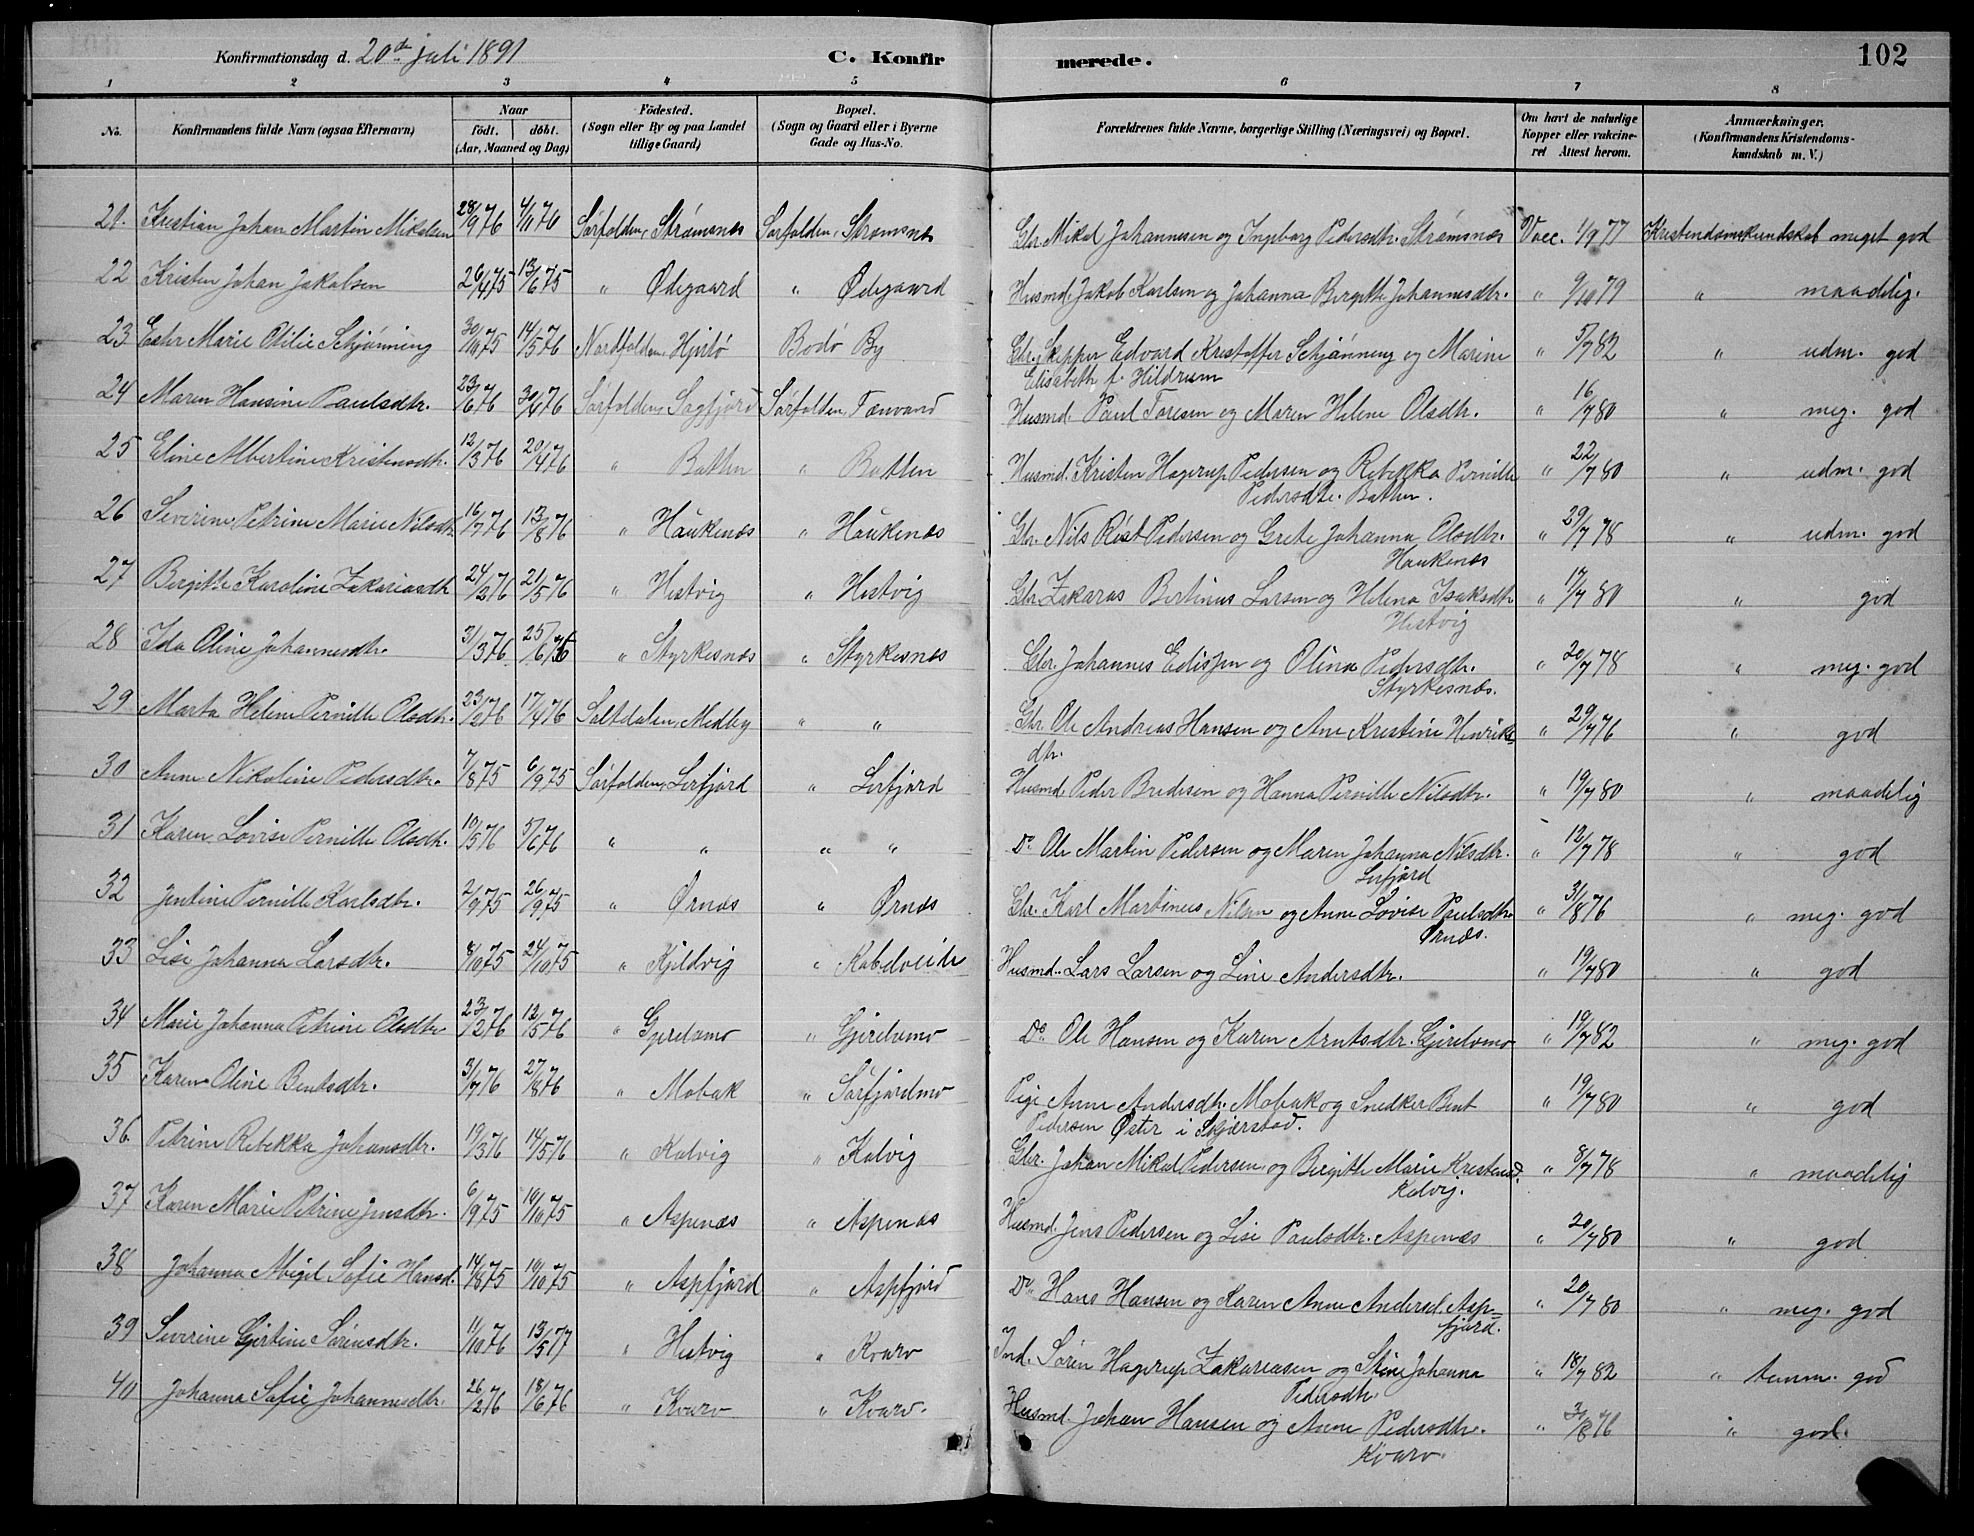 Konfirmationsdag d. 20de juli 1891
C. Konfirmerede.
102
1 2 3 4 5 6 7 8
No. | Konfirmandens fulde Navn (ogsaa Efternavn) | Naar födt. döbt. (Aar, Maaned og Dag) | Födested. (Sogn eller By og paa Landet tillige Gaard) | Bopæl. (Sogn og Gaard eller i Byerne Gade og Hus-No. | Forældrenes fulde Navne, borgerlige Stilling (Næringsvei) og Bopæl. | Om havt de naturlige Kopper eller vakcineret Attest herom. | Anmærkninger. (Konfirmandens Kristendomskundskab m. V.)
21. Kristian Johan Martin Mikalsen 28/9 76 4/11 76 Sørfolden, Strømsnes Sørfolden, Strømsnes Gbr. Mikal Johannesen og Ingeborg Pedersdtr. Strømsnes Vacc. 1/9 77 Kristendomskundskab meget god
22 Kristen Johan Jakobsen 26/4 75 13/6 75 " Ødegaard " Ødegaard Husmd. Jakob Karlsen og Johanna Birgitte Johannesdtr. " 9/10 79 " maadelig.
23 Ester Marie Otilie Schjønning 30/10 75 14/5 76 Nordfolden, Hjertø Bodø By Gbr. Skipper Edvard Kristoffer Schjønning og Marine Elisabeth f. Hildrum " 5/7 82 " udm. god
24 Maren Hansine Paulsdtr. 23/6 76 30/6 76 Sørfolden, Sagfjord Sørfolden, Tønvand Husmd. Paul Toresen og Maren Helene Olsdtr. " 16/7 80 " meg. god
25 Eline Albertine Kristensdtr. 12/3 76 20/4 76 " Botten " Botten Husmd. Kristen Hagerup Pedersen og Rebekka Pernille Pedersdtr. Botten. " 22/7 80 " udm. god
26 Severine Petrine Marie Nilsdtr. 16/7 76 13/8 76 " Haukenæs " Haukenæs Gbr. Nils Røst Pedersen og Grete Johanna Olsdtr. Haukenæs " 29/7 78 " udm. god
27 Birgitte Karoline Zakariasdtr 24/2 76 21/5 76 " Hestvig " Hestvig Gbr. Zakaras Bertinus Larsen og Helena Isaksdtr Hestvig " 17/7 80 " god
28 Ida Oline Johannesdtr. 3/3 76 25/6 76 " Styrkesnæs " Styrkesnæs Gbr. Johannes Edisen og Olina Pedersdtr. Styrkesnæs. " 20/7 78 " meg. god
29 Marta Heline Pernille Olsdtr. 23/2 76 17/4 76 Saltdalen, Medby " " Gbr. Ole Andreas Hansen og Ane Kristine Henriksdtr. " 29/7 76 " god
30 Anne Nikoline Pedersdtr. 7/8 75 6/9 75 Sørfolden, Lerfjord " Lerfjord Husmd. Peder Bredesen og Hanna Pernille Nilsdtr. " 19/7 80 " maadelig
31 Karen Lovise Pernille Olsdtr. 10/5 76 5/6 76 " " " " Do. Ole Martin Pedersen og Maren Johanna Nilsdtr. Lerfjord " 12/7 78 " god
32 Jentine Pernille Karlsdtr. 2/9 75 26/9 75 " Ørnes " Ørnes Gbr. Karl Martinus Nilsen og Anne Lovise Paulsdtr. Ørnæs. " 31/8 76 " meg. god
33 Lise Johanna Larsdtr. 8/10 75 24/10 75 " Kjeldvig " Kobelveide Husmd. Lars Larsen og Line Andersdtr. " 19/7 80 " god
34 Marie Johanna Petrine Olsdtr 23/2 76 12/5 76 " Gjerdemo " Gjerdemo Do. Ole Hansen og Karen Arntsdtr. Gjerdemo " 19/7 82 " meg. god
35 Karen Oline Bentsdtr. 3/7 76 27/8 76 " Mobak " Sørfjordmo Pige Anne Andersdtr. Mobak og Snedker Bent Pedersen Øster i Skjærstad. " 19/7 80 " god
36. Petrine Rebekka Johansdtr. 19/3 76 14/5 76 " Kalvig " Kalvig Gbr. Johan Mikal Pedersen og Birgitte Marie Kristensd. Kalvig. " 8/7 78 " maadelig
37 Karen Marie Petrine Jensdtr. 6/9 75 10/10 75 " Aspenæs " Aspenæs Husmd. Jens Pedersen og Lise Paulsdtr. Aspenæs " 20/7 80 " god
38 Johanna Abigel Sofie Hansd. 14/8 75 10/10 75 " Aspfjord " Aspfjord Do. Hans Hansen og Karen Anne Andersd. Aspfjord. " 20/7 80 " meg. god
39 Severine Gjertine Sørensdtr. 11/10 76 13/5 77 " Hestvig " Kvarv Ind. Sören Hagerup Zakariasen og Stine Johanna Pedersdtr. " 18/7 82 " temm. god
40 Johanna Sofie Johannesdtr. 26/2 76 18/6 76 " Kvarv " Kvarv. Husmd. Johan Hansen og Anne Pedersdtr. Kvarv. " 31/8 76 " god.